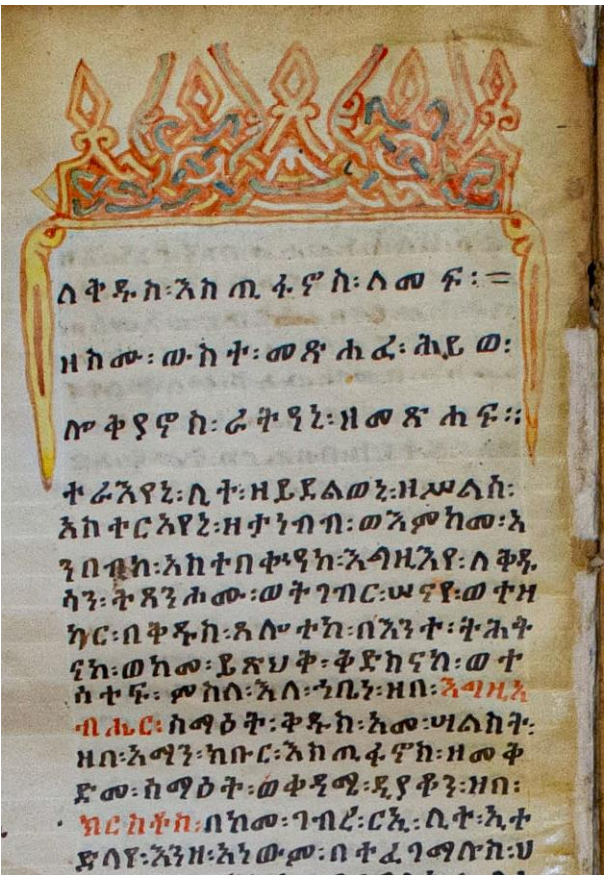 ለቅዱስ፡እስጢፋኖስ፡ለመፍ፡=
ዘከሙ፡ውስተ፡መጽሐፈ፡ሕይወ፡
ሎቅያኖስ፡ራትዓኒ፡ዘመጽሐፍ።
ተራእየኒ፡ሊተ፡ዘይደልወኒ፡ዘሥልስ፡
አስተርአየኒ፡ዘታነብብ፡ወእምከመ፡አ
ንበብከ፡አስተበቍዓከ፡እግዚእየ፡ለቅዱ
ሳን፡ትጸንሖሙ፡ወትገብር፡ሠናየ፡ወተዘ
ካር፡በቅዱስ፡ጸሎተከ፡በእንተ፡ትሕት
ናከ፡ወከመ፡ይጽህቅ፡ቅድስናከ፡ወተ
ሳተፍ፡ምስለ፡እለ፡ኀቤነ፡ዘበ፡እግዚአ
ብሔር፡ስማዕት፡ቅዱስ፡አመ፡ሣልስት፡
ዘበ፡አማን፡ክቡር፡እስጢፋኖስ፡ዘመቅ
ድመ፡ስማዕት፡ወቀዳሚ፡ዲያቆን፡ዘበ፡
ክርስቶስ፡በከመ፡ገብረ፡ርኢ፡ሊተ፡ኢተ
ድላየ፡እንዘ፡እነውም፡በተፈገማሉስ፡ህ